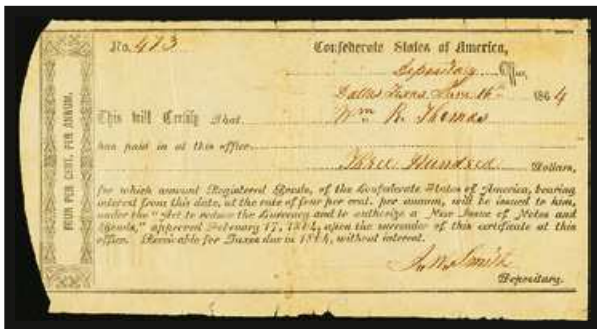 FOUR PER CENT. PER ANNUM.
No. 473
Confederate States of America,
Depositary Office,
Dallas Texas 16th 1864
This will Certify that Wm R. Thomas
has paid in at this office
Three Hundred Dollars,
for which amount Registered Bonds, of the Confederate States of America, bearing
interest from this date, at the rate of four per cent. per annum, will be issued to him,
under the "Act to reduce the Currency and to authorize a New Issue of Notes and
Bonds," approved February 17, 1864, upon the surrender of this certificate at this
office. Receivable for Taxes due in 1864, without interest.
Smith
Depositary.